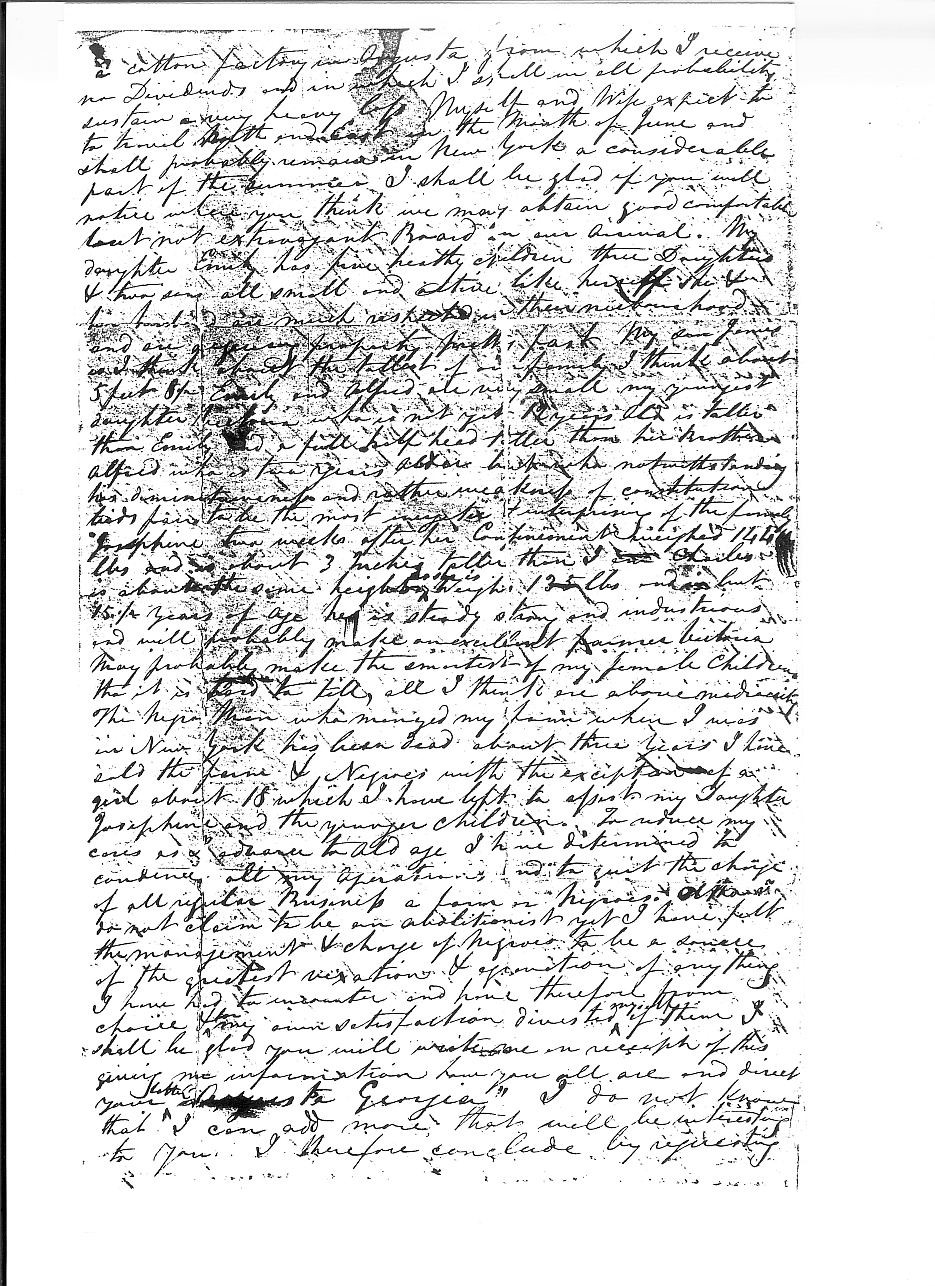 a cotton factory in Augusta from which I receive
no Dividends and in which I shall in all probability
sustain a very heavy loss Myself and Wife expect to
to travel North and East in the Month of June and
shall probably remain in New York a considerable
part of the summer I shall be glad if you will
notice where you think we may obtain good comfortable
but not extravagant Board on our arrival. My
daughter Emily has five healthy children three Daughters
& two sons all small and active like herself She &
her husband are much respected in their neighbourhood
and are property fast My son James
is I think about the tallest of our family I think about
5 feet 8 1/2 Emily and Alfred are very small my youngest
daughter Victoria who is not yet 12 years old is taller
than Emily and a full half head taller than her Brother
Alfred who is two years older but who notwithstanding
his diminutiveness and rather weakness of constitution
bids fair to be the most & enterprising of the family
Josephine two weeks after her Confinement weighed 144
lbs and is about 3 Inches taller than I Charles
is about the same height weighs lbs and is but
15 1/2 years of age he is steady strong and industrious
and will probably make an excellent farmer Victoria
May probably make the smartest of my female Children
tho it is hard to tell, all I think are above mediocrity
The Negro Man who managed my farm when I was
in New York has been dead about three years I have
sold the farm & Negroes with the exception of a
girl about 18 which I have left to assist my Daughter
Josephine and the younger children. To reduce my
cares as I advance to old age I have determined to
condence all my operations and to quit the charge
of all regular Business a farm or Negroes. Altho I
do not claim to be an abolitionist yet I have felt
the management & charge of Negroes to be a source
of the greatest vexation & of anything
I have had to encounter and have therefore from
choice & for my own satisfaction divested myself of them I
shall be glad you will write me on receipt of this
giving me information how you all are and direct
your letter Augusta Georgia" I do not know
that I can add more that will be interesting
to you. I therefore conclude by requesting